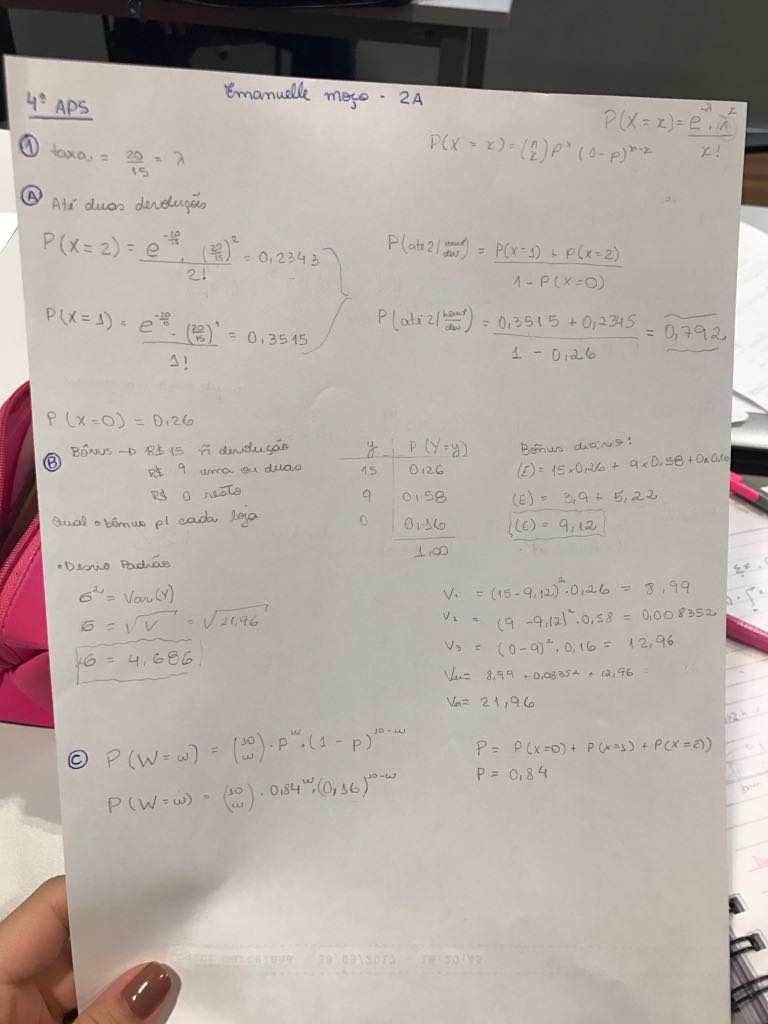 Emanuelle moço - 2A
4º APS
P(X = x) = e^-λ . λ^x / x!
P(X = x) = (n x) P^x (1 - p)^n-x
① taxa = 20/15 = λ
Ⓐ Até duas devoluções
P(X = 2) = e^-20/15 . (20/15)^2 / 2! = 0,2343
P(X = 1) = e^-20/15 . (20/15)^1 / 1! = 0,3515
P(X=0) = 0,26
P(até 2 | houve dev) = P(X=1) + P(X=2) / 1 - P(X=0)
P(até 2 | houve dev) = 0,3515 + 0,2345 / 1 - 0,26 = 0,792
Ⓑ Bônus → R$ 15 ñ devolução
R$ 9 uma ou duas
R$ 0 resto
Qual o bônus p/ cada loja
y P(Y=y)
15 0,26
9 0,58
0 0,16
1,00
Bônus diário:
(E) = 15 x 0,26 + 9 x 0,58 + 0 x 0,16
(E) = 3,9 + 5,22
(E) = 9,12
• Desvio Padrão
σ² = Var(Y)
σ = √V = √21,96
σ = 4,686
V₁ = (15-9,12)² . 0,26 = 8,99
V₂ = (9 - 9,12)² . 0,58 = 0,008352
V₃ = (0-9)² . 0,16 = 12,96
Var = 8,99 + 0,08352 + 12,96 =
Var = 21,96
Ⓒ P(W = w) = (10 w) . P^w . (1 - p)^10-w
P(W = w) = (10 w) . 0,84^w . (0,16)^10-w
P = P(X=0) + P(X=1) + P(X=2))
P = 0,84